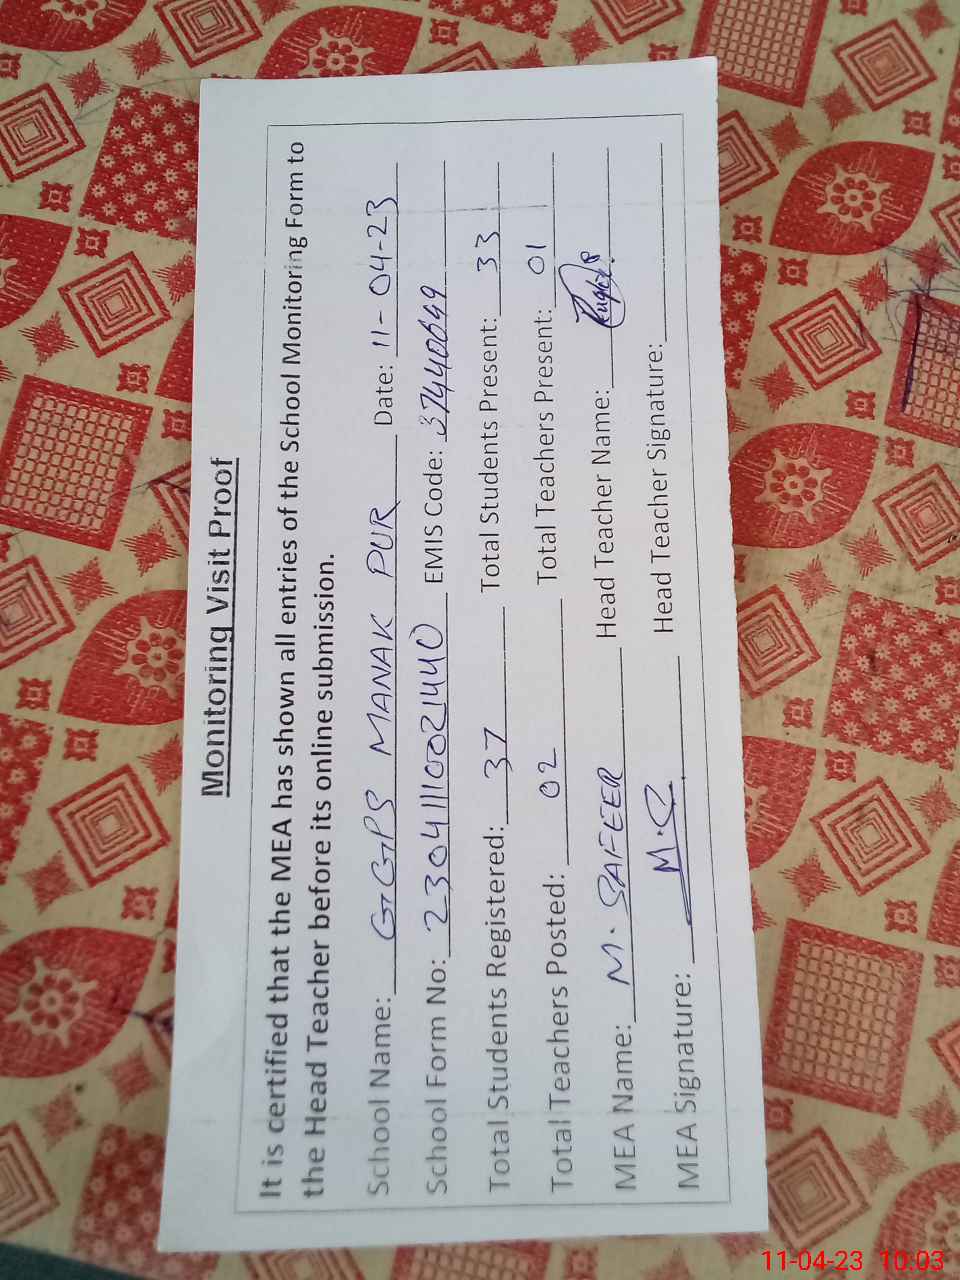 Monitoring Visit Proof
It is certified that the MEA has shown all entries of the School Monitoring Form to
the Head Teacher before its online submission.
School Name: GGPS MANAK PUR Date: 11-04-23
School Form No: 23041110021440 EMIS Code: 37440649
Total Students Registered: 37 Total Students Present: 33
Total Teachers Posted: 02 Total Teachers Present: 01
MEA Name: M. SAFEER Head Teacher Name:
MEA Signature: Head Teacher Signature:
11-04-23 10:03